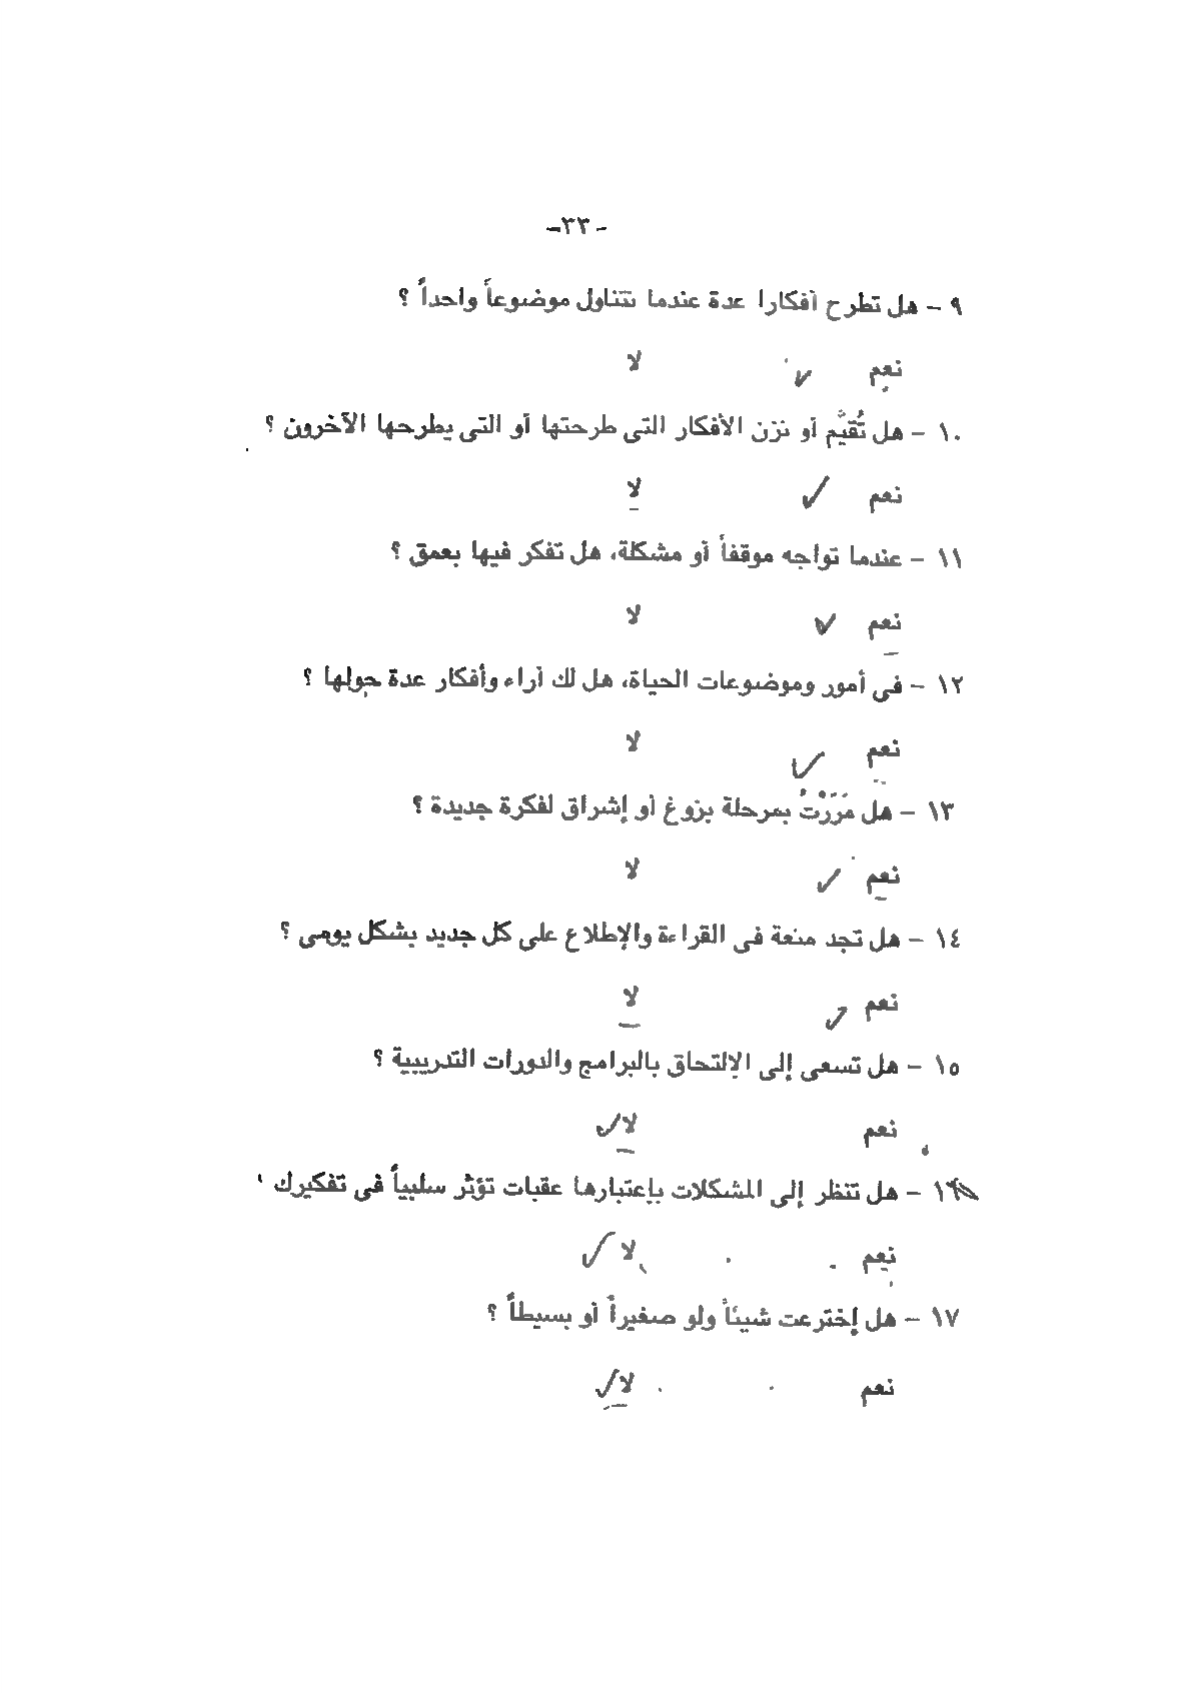 -٣٣-
٩ - هل تطرح أفكارا عدة عندما تتناول موضوعاً واحداً ؟
نعم ✓ لا
١٠ - هل تُقيَّم أو تزن الأفكار التى طرحتها أو التى يطرحها الآخرون ؟
نعم ✓ لا
١١ - عندما تواجه موقفاً أو مشكلة، هل تفكر فيها بعمق ؟
نعم ✓ لا
١٢ - فى أمور وموضوعات الحياة، هل لك آراء وأفكار عدة حولها ؟
نعم ✓ لا
١٣ - هل مَرَرْتُ بمرحلة بزوغ أو إشراق لفكرة جديدة ؟
نعم ✓ لا
١٤ - هل تجد متعة فى القراءة والإطلاع على كل جديد بشكل يومى ؟
نعم ✓ لا
١٥ - هل تسعى إلى الإلتحاق بالبرامج والدورات التدريبية ؟
نعم لا ✓
١٦ - هل تنظر إلى المشكلات بإعتبارها عقبات تؤثر سلبياً فى تفكيرك
نعم لا ✓
١٧ - هل إخترعت شيئاً ولو صغيراً أو بسيطاً ؟
نعم لا ✓